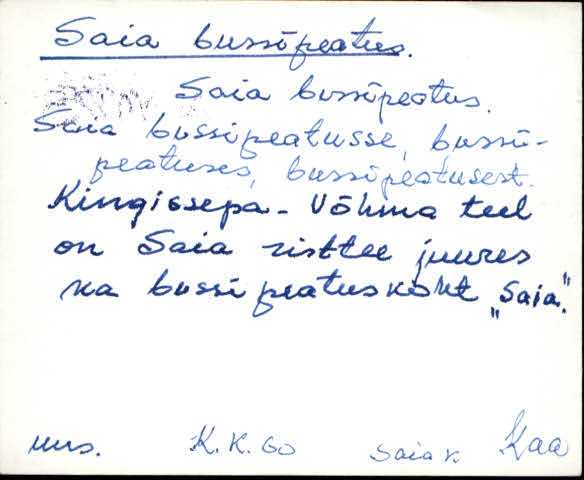 Saia bussipeatus.
Saia bussipeatus.
Saia bussipeatusse, bussi-
peatuses, bussipeatusest.
Kingissepa - Võhma teel
on Saia risttee juures
ka bussi peatuskoht „Saia”.
uus. K. K. GO Saia k. Kaa